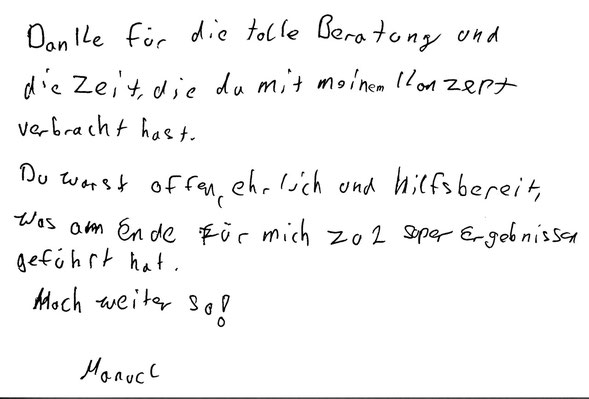 Danke für die tolle Beratung und
die Zeit, die du mit meinem Konzept
verbracht hast.
Du warst offen, ehrlich und hilfsbereit,
was am Ende für mich zu 2 super Ergebnissen
geführt hat.
Mach weiter so!
Manuel